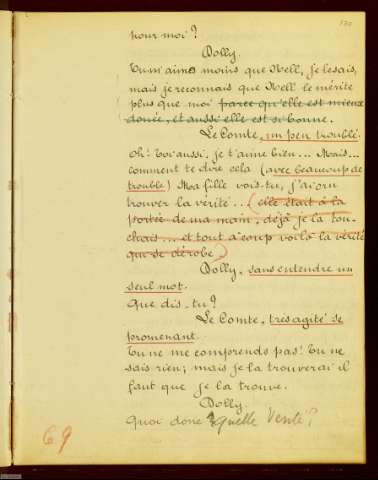 pour moi?
Dolly.
Tu m'aimes moins que Nell, je le sais,
mais je reconnais que Nell le mérite
plus que moi parce qu'elle est mieux
douée, et aussi elle est si bonne.
Le Comte, un peu troublé.
Oh! Toi aussi, je t'aime bien... Mais...
comment te dire cela (avec beaucoup de
trouble) Ma fille vois-tu, j'ai cru
trouver la vérité... (elle était à la
portée de ma main, déjà je la tou-
chais... et tout à coup voilà la vérité
qui se dérobe)
Dolly, sans entendre un
seul mot.
Que dis-tu?
Le Comte, très agité se
promenant.
Tu ne me comprends pas! Tu ne
sais rien; mais je la trouverai il
faut que je la trouve.
Dolly.
Quoi donc? Quelle Vérité?
69